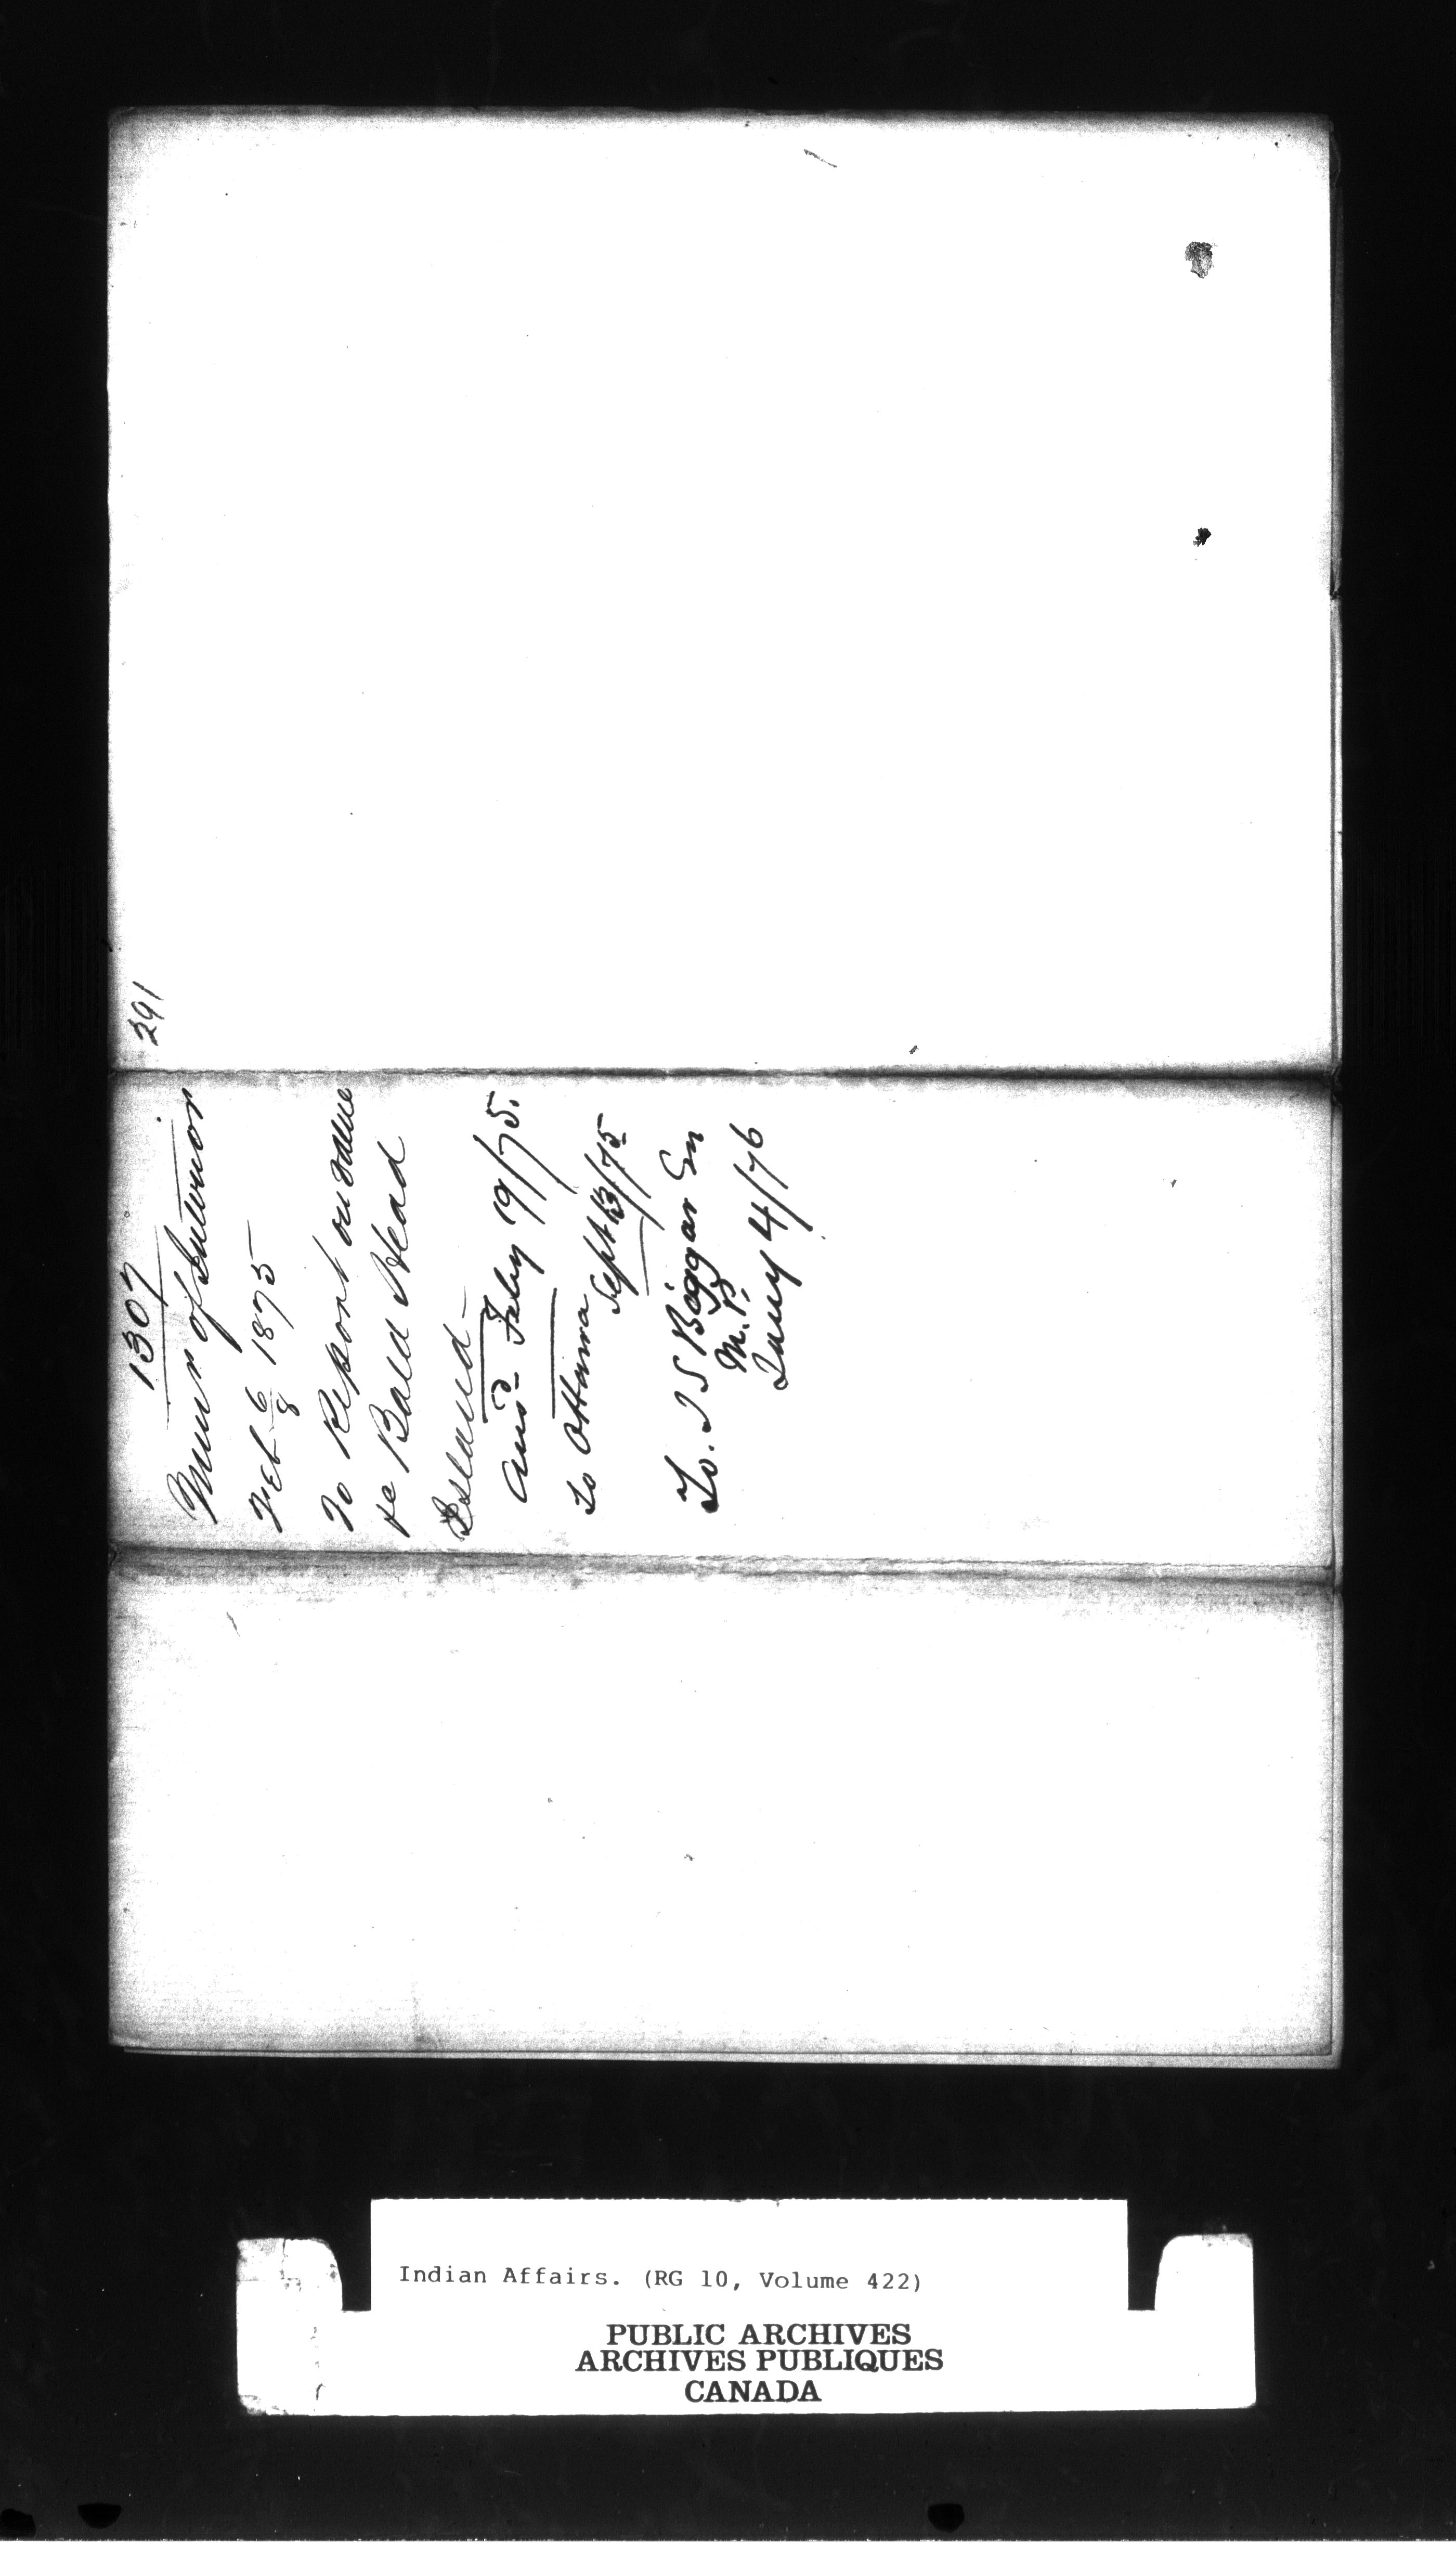 291
1307
Minr of Interior
Feb 6/8 1875
To Report on value
re Bald Head
Island -
Ansd - Feby 19/75.
To Ottawa
Sept 13/75
To. J S Biggar Esq
M.P.
Jany 4/76
Indian Affairs. (RG 10, Volume 422)
PUBLIC ARCHIVES
ARCHIVES PUBLIQUES
CANADA